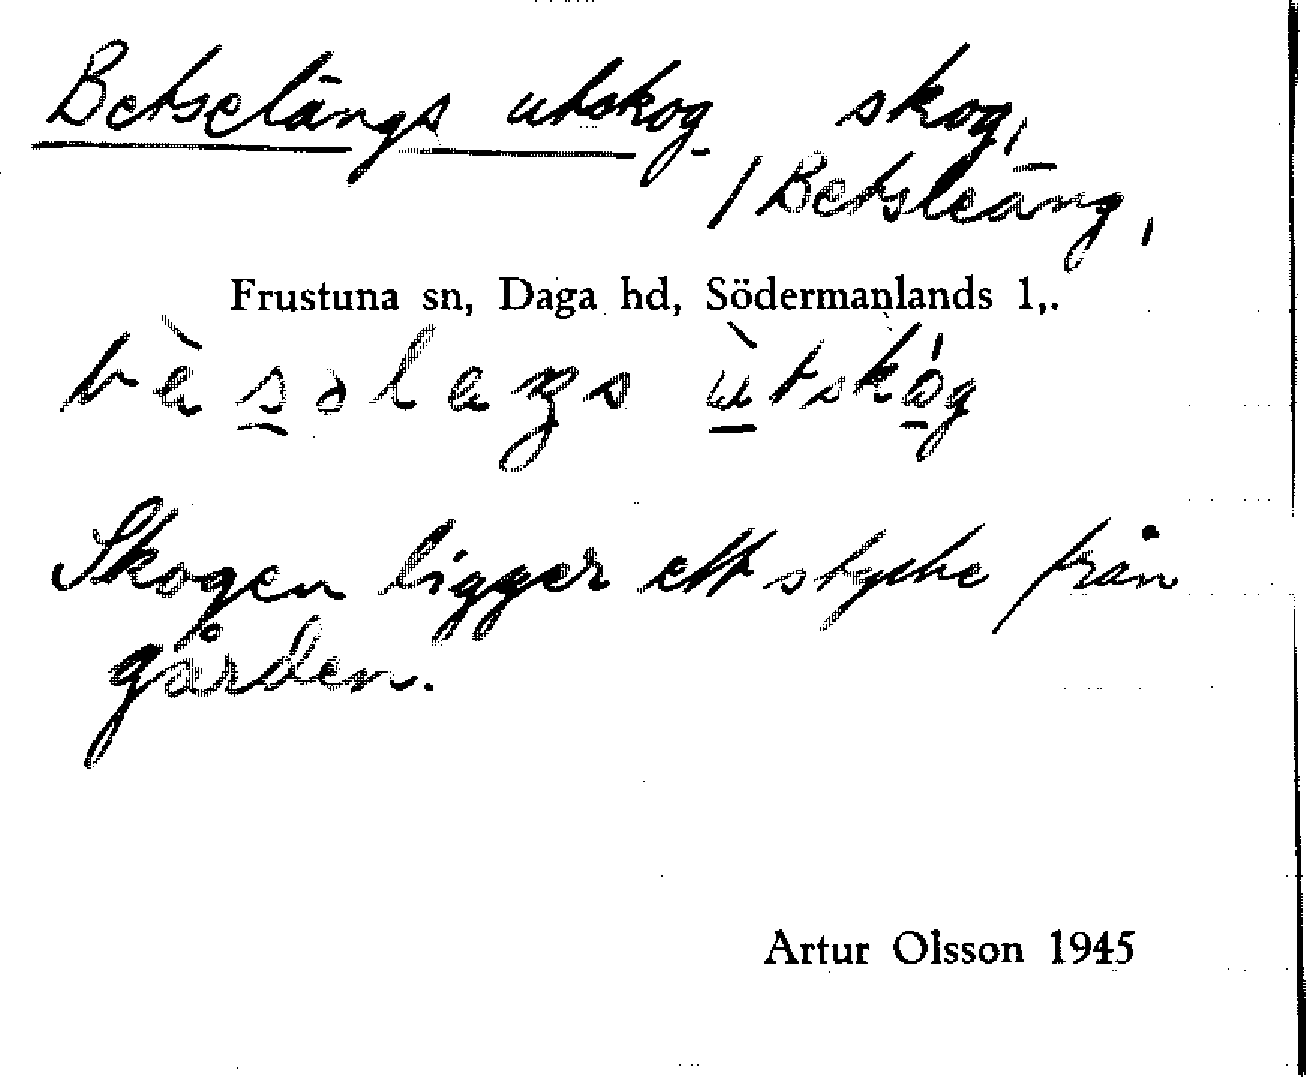 Betselängs utskog skog,
/ Betsleäng,
Frustuna sn, Daga hd, Södermanlands l,.
Skogen ligger ett stycke från
gården.
Artur Olsson 1945